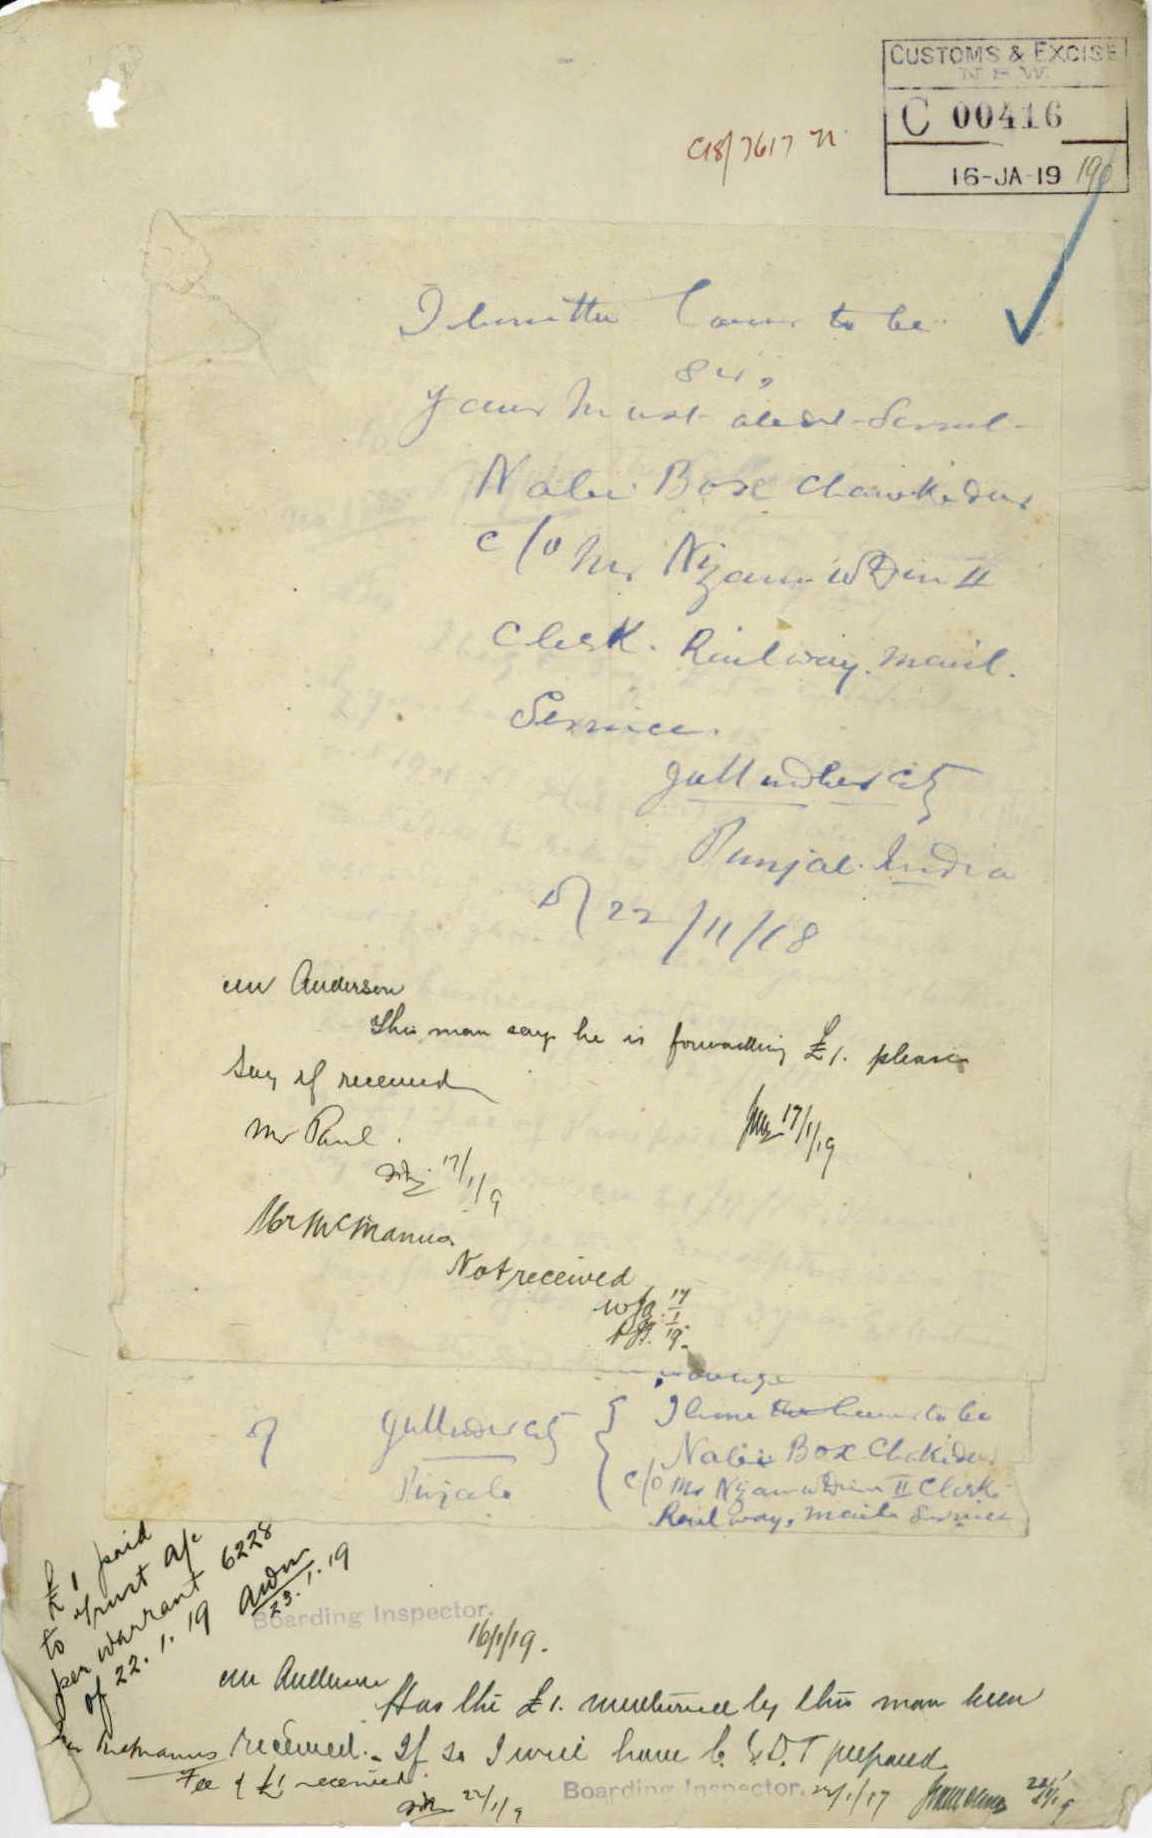 CUSTOMS & EXCISE
N.S.W.
C 00416
16-JA-19
C18/7617
I have the honor to be
Sir,
your most obedt Servt
Nabi Box Chowkidar
c/o Mr Nizam ud Din II
Clerk. Railway. mail.
Service.
Jullundher City
Punjab. India
22/11/18
Mr Anderson
This man says he is forwarding £1. please
say if received
17/1/19
Mr Paul.
17/1/19
Mr McManus
Not received
17/1/19
of Jullundur City
Punjab
I have the honor to be
Nabi Box Chokidar
c/o Mr Nizam ud Din II Clerk
Railway, mail Service
£1 paid
to Trust a/c
per warrant 6228
of 22.1.19
23.1.19
Boarding Inspector.
16/1/19.
Mr Anderson
Has the £1. mentioned by this man been
received. If so I will have C.E.D.T prepared
Mr McManus
Fee of £1 received.
22/1/19
Boarding Inspector.